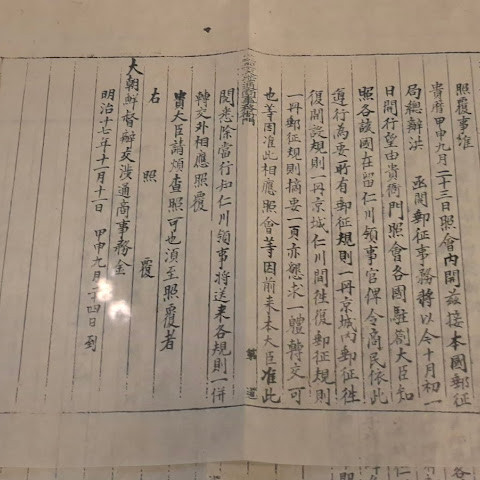 照覆事准
貴曆甲申九月二十三日照會內開茲接本國郵征
局總辦洪 函開郵征事務將以今十月初一
日開行望由貴衙門照會各國駐劄大臣知
照各該國在留仁川領事官俾令商民依此
遵行爲要所有郵征規則一冊京城內郵征徃
復開設規則一冊京城仁川間徃復郵征規則
一冊郵征規則摘要一頁亦懇求一體轉交可
也等因准此相應照會等因前来本大臣准此
閱悉除當行知仁川領事將送来各規則一併
轉交外相應照覆
貴大臣請煩查照可也須至照覆者
右 照 覆
大朝鮮督辦交涉通商事務金
明治十七年十一月十一日 甲申九月二十四日到
通商事務衙門